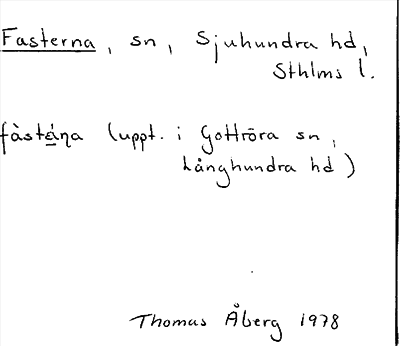 Fasterna, sn, Sjuhundra hd,
Sthlms l.
fàstä́ṇa (uppt. i Gottröra sn,
Långhundra hd)
Thomas Åberg 1978